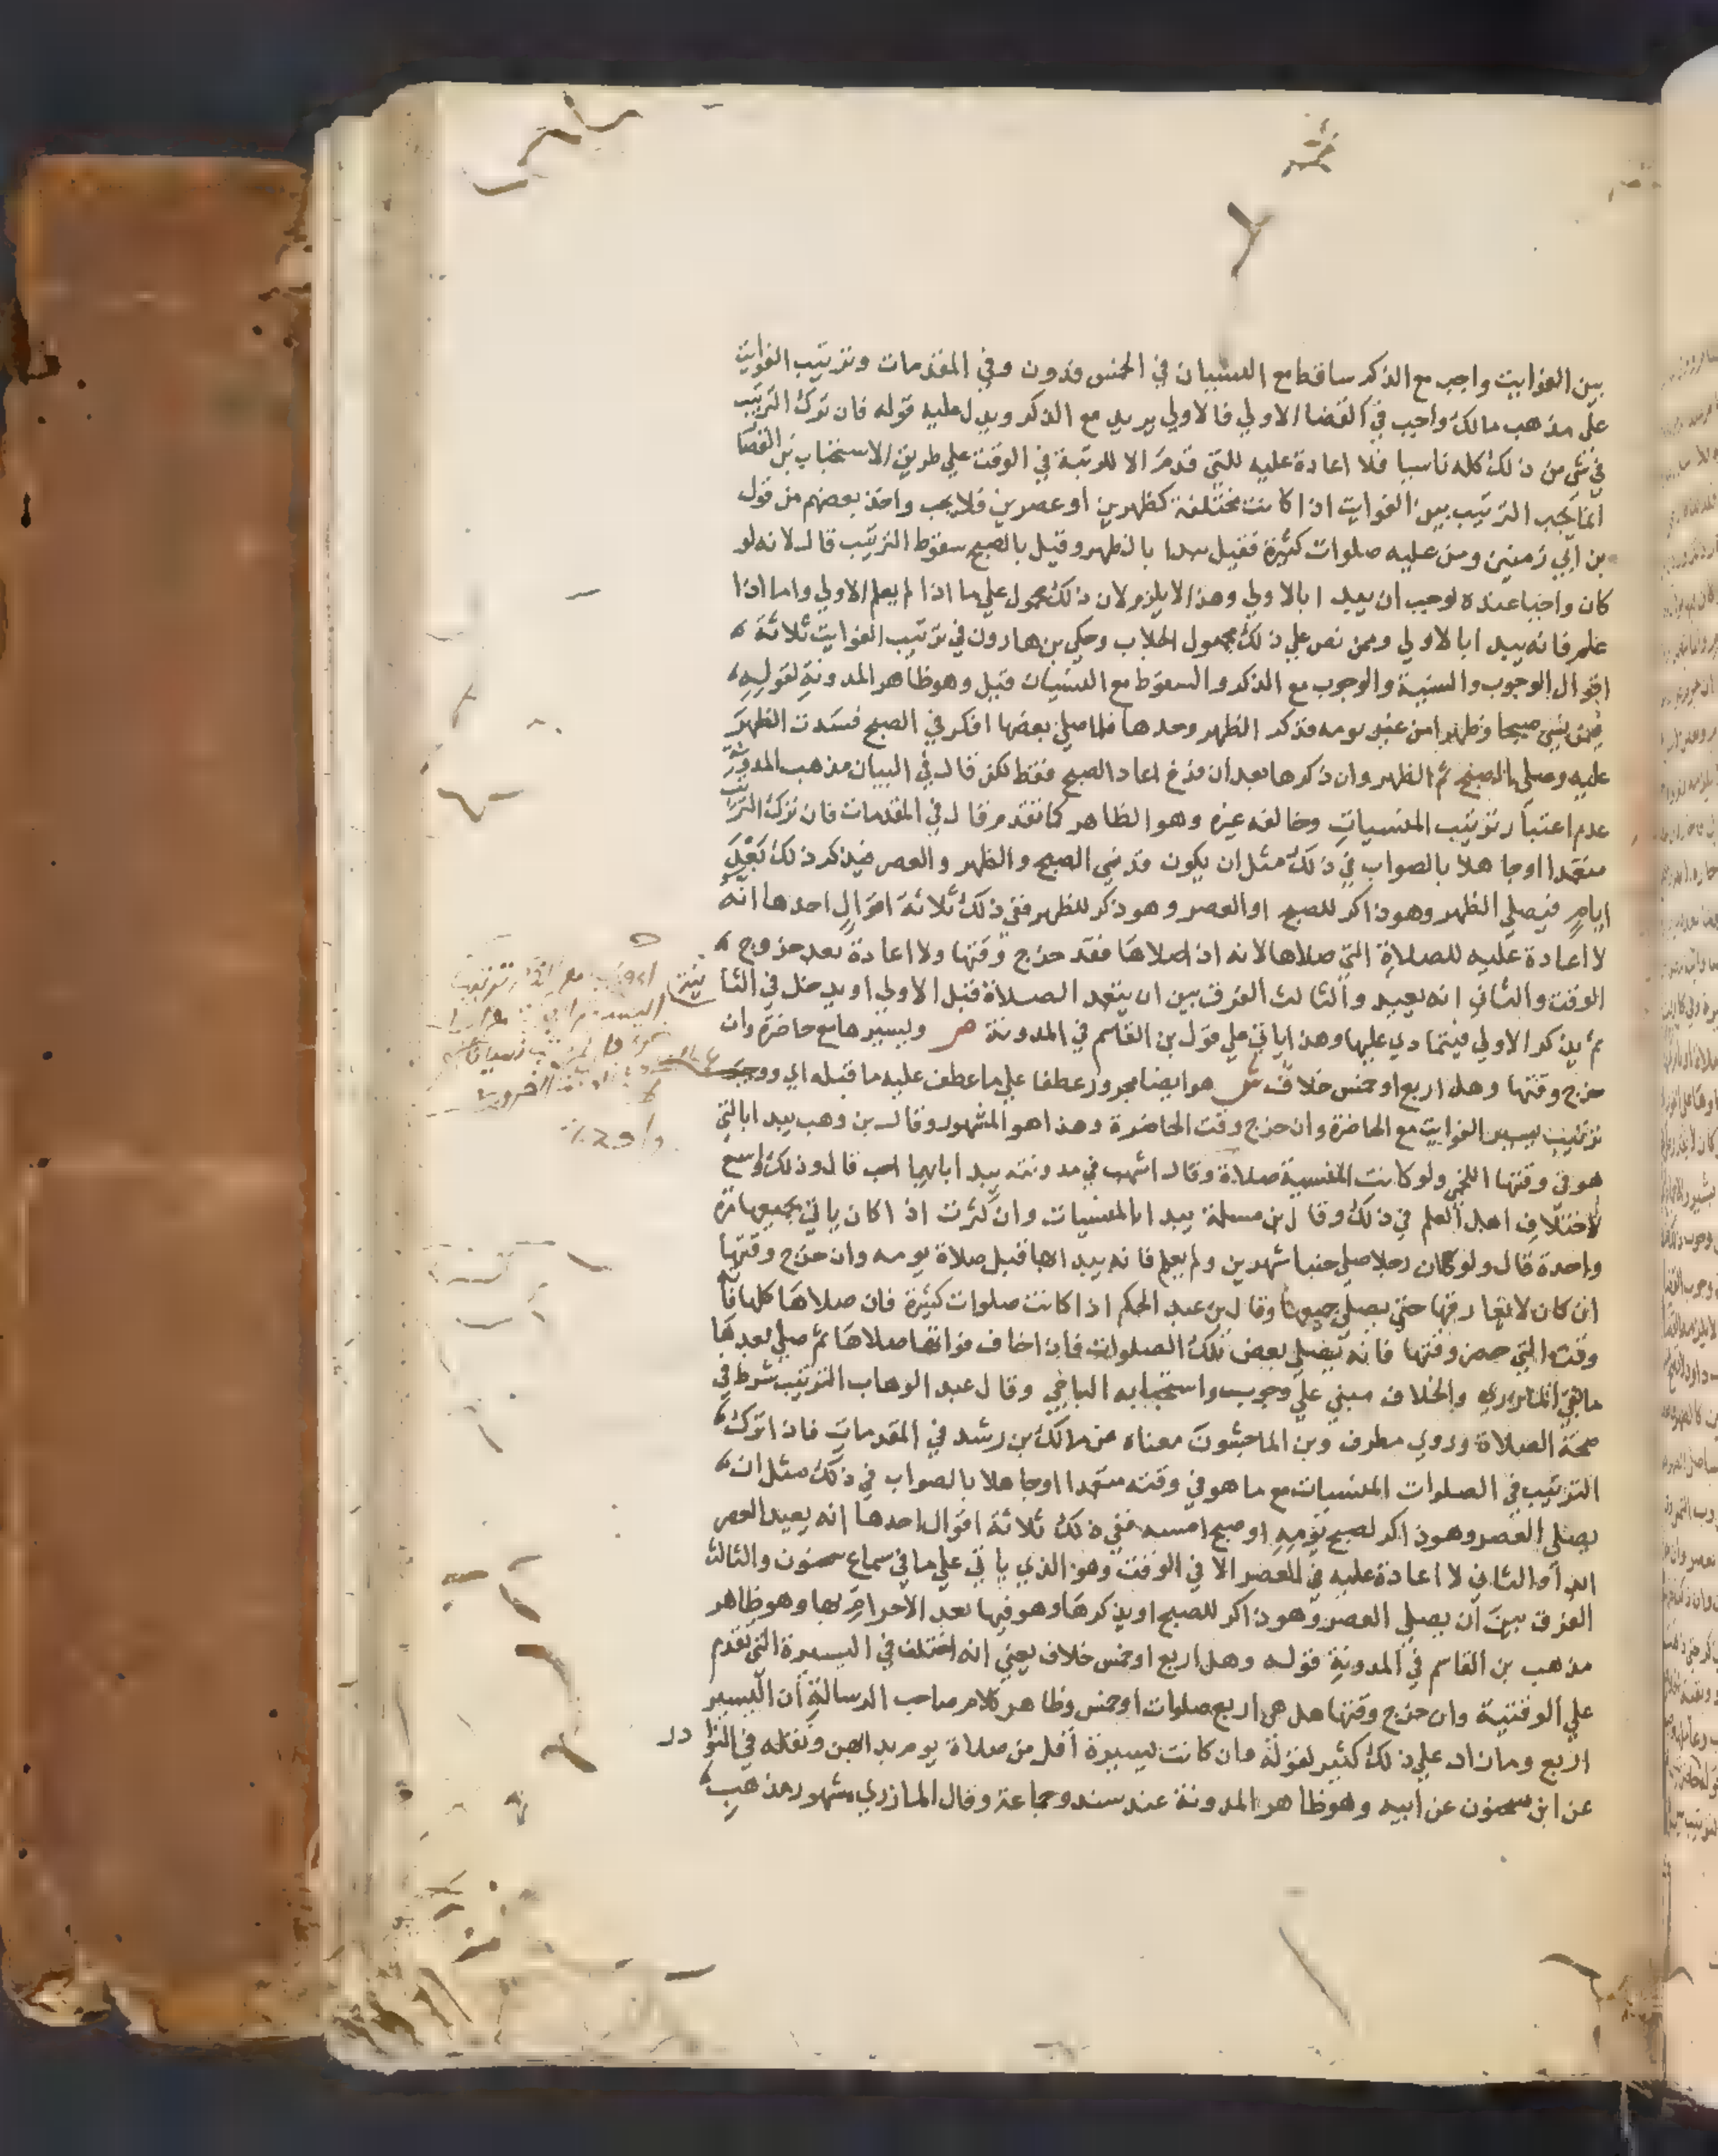 بين الفوايت واجب مع الذكر ساقط مع النسيان في الخمس فدون وفي المقدمات وترتيب الفوايت
علي مذهب مالك واجب في القضا الاولي فالاولي يريد مع الذكر ويدل عليه قوله فان ترك الترتيب
في شي من ذلك كله ناسيا فلا اعادة عليه للتي قدم الا للرتبة في الوقت علي طريق الاستحباب بن القصا
انما يجب الترتيب بين الفوايت اذا كانت مختلفة كظهرين او عصرين فلا يجب واخذ بعضهم من قول
بن ابي زمنين ومن عليه صلوات كثيرة فقيل يبدا بالظهر وقيل بالصبح سقوط الترتيب قال لانه لو
كان واجبا عنده لوجب ان يبدا بالاولي وهذا لا يلزم لان ذلك محمول علي ما اذا لم يعلم الاولي واما اذا
علم فانه يبدا بالاولي وممن نص علي ذلك مجهول الجلاب وحكي بن هارون في ترتيب الفوايت ثلاثة
اقوال الوجوب والسنية والوجوب مع الذكر والسقوط مع النسيان قيل وهو ظاهر المدونة لقوله
فمن نسي صبحا وظهرا من غير يومه فذكر الظهر وحدها فلما صلي بعضها افكر في الصبح فسدت الظهر
عليه وصلي الصبح ثم الظهر وان ذكرها بعد ان فرغ اعاد الصبح فقط لكن قال في البيان مذهب المدونة
عدم اعتبار ترتيب المنسيات وخالفه غيره وهو الظاهر كما تقدم وقال في المقدمات فان ترك الترتيب
متعمدا او جاهلا بالصواب في ذلك مثل ان يكون قد نسي الصبح والظهر والعصر فيذكر ذلك بعد
ايام فيصلي الظهر وهو ذاكر للصبح او العصر وهو ذكر للظهر ففي ذلك ثلاثة اقوال احدها انه
لا اعادة عليه للصلاة التي صلاها لانه اذا صلاها فقد خرج وقتها ولا اعادة بعد خروج
الوقت والثاني انه يعيد والثالث الفرق بين ان يتعمد الصلاة قبل الاولي او يدخل في الثانية
ثم يذكر الاولي فيتمادي عليها وهذا ياتي علي قول بن القاسم في المدونة ص ويسيرها مع حاضرة وان
خرج وقتها وهل اربع او خمس خلاف ش هو ايضا مجرور عطفا علي ما عطف عليه ما قبله اي ووجب
ترتيب يسير الفوايت مع الحاضرة وان خرج وقت الحاضرة وهذا هو المشهور وقال بن وهب يبدا بالتي
هو في وقتها اللخمي ولو كانت المنسية صلاة وقال اشهب في مدونته يبدا بايهما احب قال وذلك واسع
لاختلاف اهل العلم في ذلك وقال بن مسلمة يبدا بالمنسيات وان كثرت اذا كان ياتي بجميعها مرة
واحدة قال ولو كان رجلا صلي جنبا شهرين ولم يعلم فانه يبدا بها قبل صلاة يومه وان خرج وقتها
ان كان لا يفارقها حتي يصلي جميعها وقال بن عبد الحكم اذا كانت صلوات كثيرة فان صلاها كلها فاته
وقت التي حضر وقتها فانه يصلي بعض تلك الصلوات فاذا خاف فواتها صلاها ثم صلي بعدها
ما بقي المازري والخلاف مبني علي وجوبه واستحبابه الباجي وقال عبد الوهاب الترتيب شرط في
صحة الصلاة وروي مطرف وبن الماجشون معناه عن مالك بن رشد في المقدمات فاذا ترك
الترتيب في الصلوات المنسيات مع ما هو في وقته متعمدا او جاهلا بالصواب في ذلك مثل ان
يصلي العصر وهو ذاكر لصبح يومه او صبح امسه ففي ذلك ثلاثة اقوال احدها انه يعيد العصر
ابدا والثاني لا اعادة عليه في العصر الا في الوقت وهو الذي ياتي علي ما في سماع سحنون والثالث
الفرق بين ان يصلي العصر وهو ذاكر للصبح او يذكرها وهو فيها بعد الاحرام بها وهو ظاهر
مذهب بن القاسم في المدونة قوله وهل اربع او خمس خلاف يعني انه اختلف في اليسيرة التي تقدم
علي الوقتية وان خرج وقتها هل هي اربع صلوات او خمس وظاهر كلام صاحب الرسالة ان اليسير
اربع وما زاد علي ذلك كثير لقوله وان كانت يسيرة اقل من صلاة يوم بدا بهن ونقله في النوادر
عن ابن سحنون عن ابيه وهو ظاهر المدونة عند سند وجماعة وقال المازري مشهور مذهب